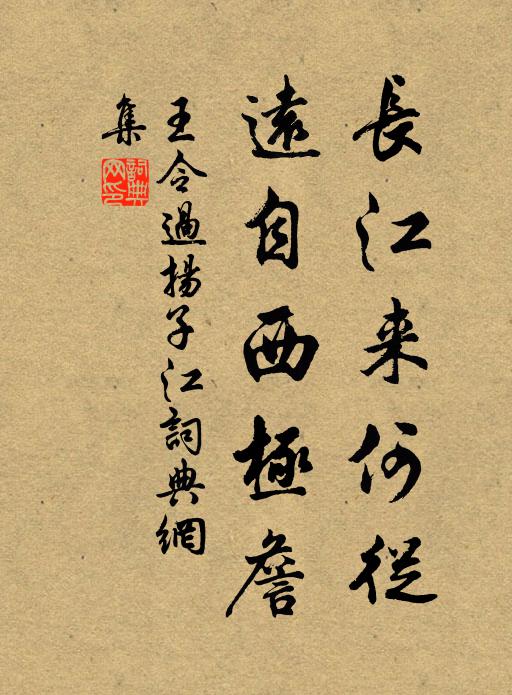 長江来何從
遠自西極詹
王令過揚子江詞典網
集
詞典
网印